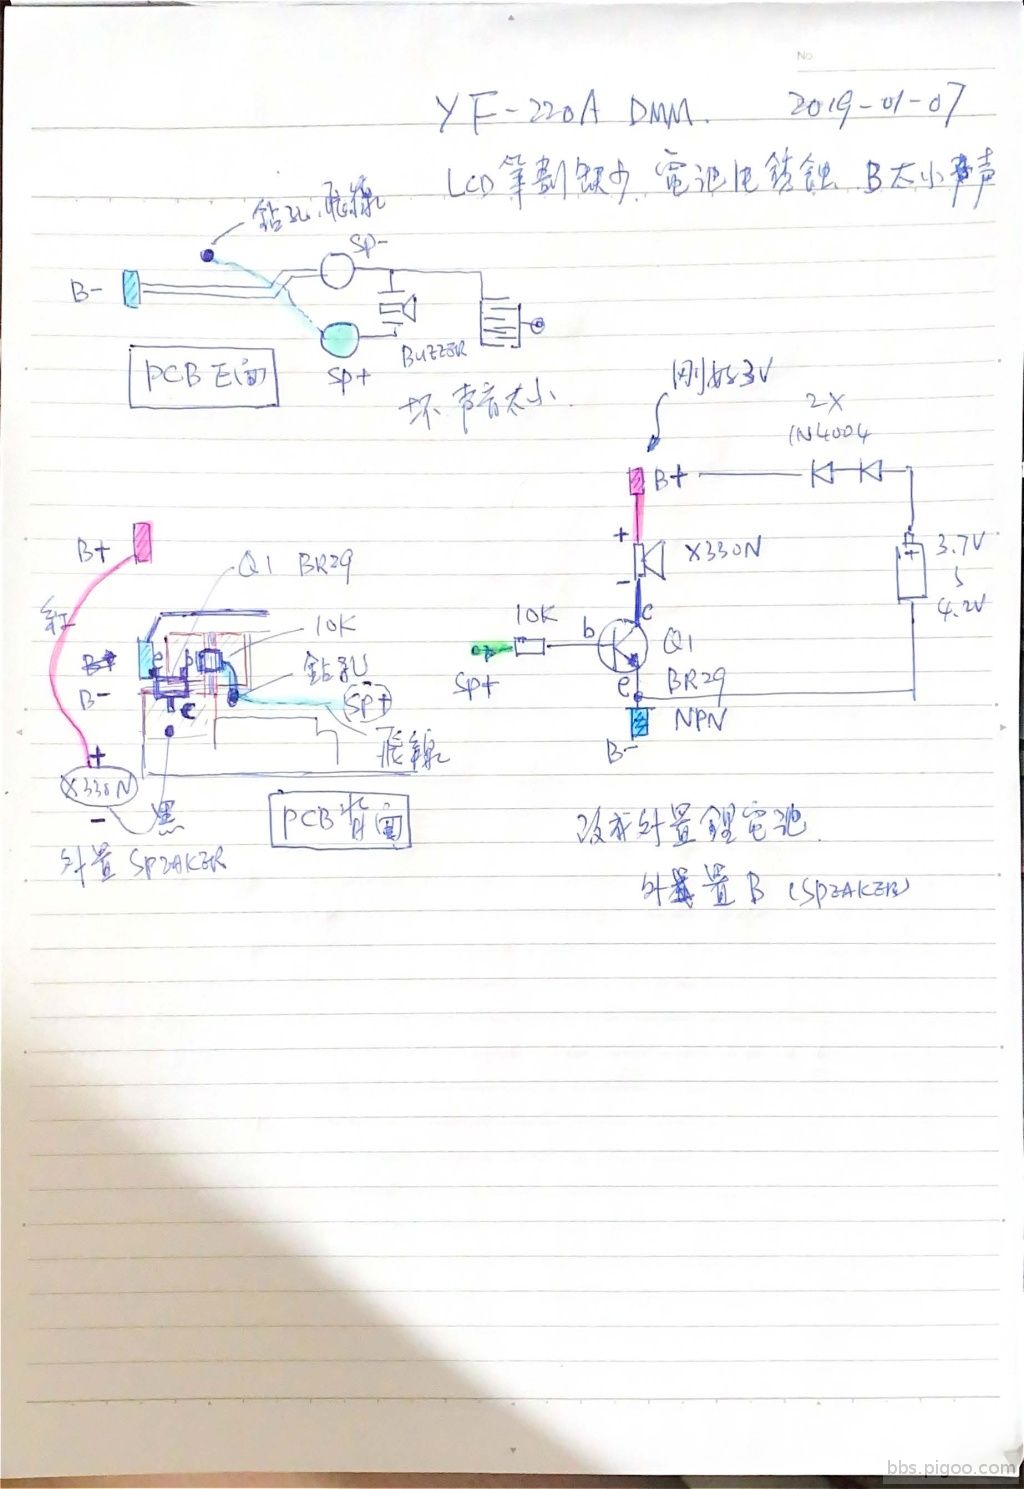 No
YF-220A DMM. 2019-01-07
LCD筆劃缺少 電池 锈蝕 B太小声
鉆孔.飛線
SP-
B-
BUZZER
SP+
PCB正面
坏 声音太小.
刚好3V
2X
1N4004
B+
+
X330N
-
3.7V
4.2V
10K
b
c
Q1
SP+
e
BR29
NPN
B-
B+
Q1 BR29
紅
10K
鉆孔
B-
e
b
c
SP+
飛線
+
X330N
-
黑
PCB背面
外置 SPEAKER
改成外置鋰電池.
外置B (SPEAKER)
bbs.pigoo.com